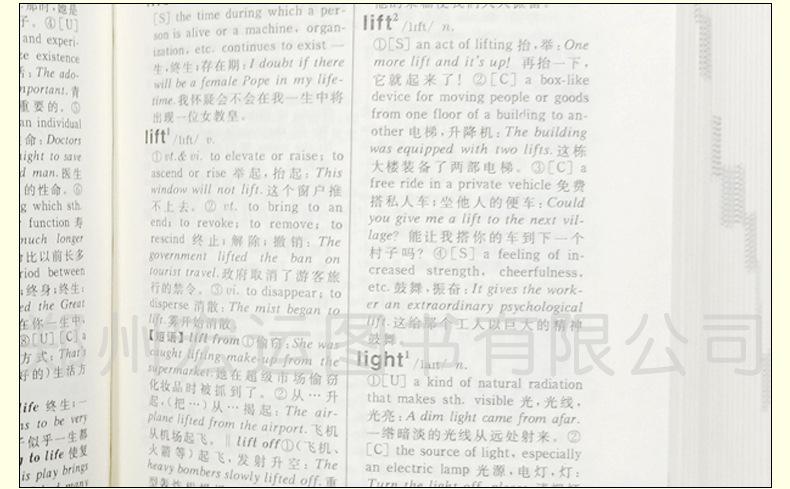 那时,她是
子。④[U]
and experi-
ce existence
舌: The ado-
mportant. 青
重要的。⑤
an individual
命: Doctors
ight to save
d man. 医生
的性命。⑥
g which sth.
function 寿
much longer
比以前长多
riod between
; 终身; 终生:
ed the Great
在你一生中,
⑧[U][C] a
方式: That's
好的)生活方
life 终生; 一
as to be very
子似乎一生都
g to life 使复
is play brings
[S] the time during which a per-
son is alive or a machine, organ-
ization, etc. continues to exist 一
生, 终生; 存在期: I doubt if there
will be a female Pope in my life-
time. 我怀疑会不会在我一生中将
出现一位女教皇。
lift¹ /lɪft/ v.
① vt.& vi. to elevate or raise; to
ascend or rise 举起, 抬起: This
window will not lift. 这个窗户推
不上去。② vt. to bring to an
end; to revoke; to remove; to
rescind 终止; 解除; 撤销: The
government lifted the ban on
tourist travel. 政府取消了游客旅
行的禁令。③ vi. to disappear; to
disperse 消散: The mist began to
lift. 雾开始消散。
【短语】lift from ①偷窃: She was
caught lifting make-up from the
supermarket. 她在超级市场偷窃
化妆品时被抓到了。②从…升
起, (把…)从…揭起: The air-
plane lifted from the airport. 飞机
从机场起飞。‖ lift off ①(飞机、
火箭等)起飞, 发射升空: The
heavy bombers slowly lifted off. 重
lift² /lɪft/ n.
①[S] an act of lifting 抬, 举: One
more lift and it's up! 再抬一下,
它就起来了! ②[C] a box-like
device for moving people or goods
from one floor of a building to an-
other 电梯, 升降机: The building
was equipped with two lifts. 这栋
大楼装备了两部电梯。③[C] a
free ride in a private vehicle 免费
搭私人车; 坐他人的便车: Could
you give me a lift to the next vil-
lage? 能让我搭你的车到下一个
村子吗? ④[S] a feeling of in-
creased strength, cheerfulness,
etc. 鼓舞, 振奋: It gives the work-
er an extraordinary psychological
lift. 这给那个工人以巨大的精神
鼓舞。
light¹ /laɪt/ n.
①[U] a kind of natural radiation
that makes sth. visible 光, 光线,
光亮: A dim light came from afar.
一绺暗淡的光线从远处射来。②
[C] the source of light, especially
an electric lamp 光源, 电灯, 灯:
Turn the light off, please.
州 图书有限公司